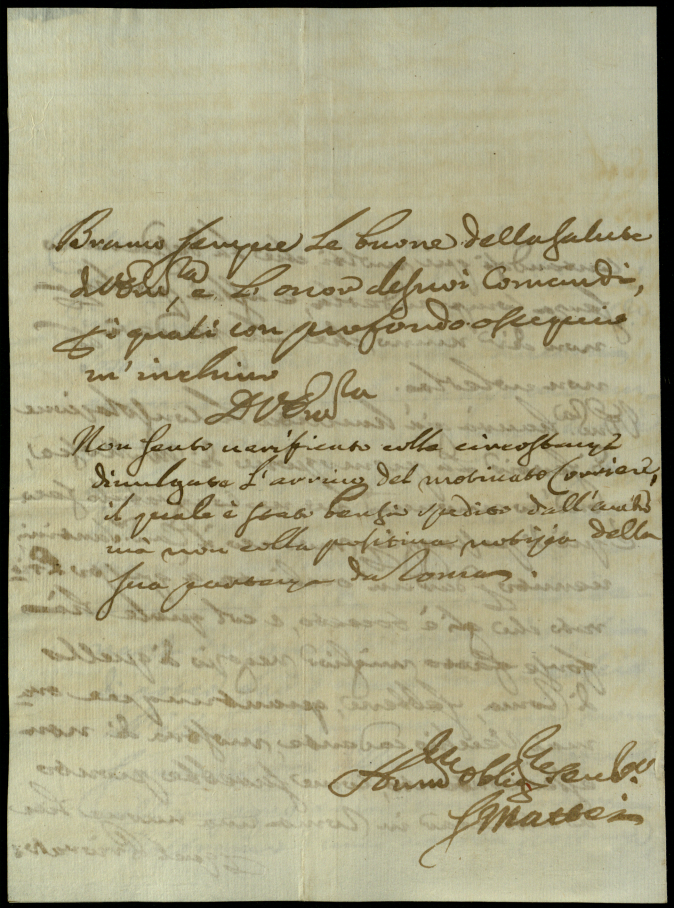 Bramo sempre le buone della salute
di V. Em.za, e l'onor de suoi Comandi,
i quali con profondo ossequio
m'inchino
D V Em.za
Non sento verificato colle circostanze
divulgate l'arrivo del motivato Corriere,
il quale è stato bensì spedito dall'
mà non colla positiva notizia della
sua partenza da Roma
Hum.mo Oblig.mo Ser.
S Mattei